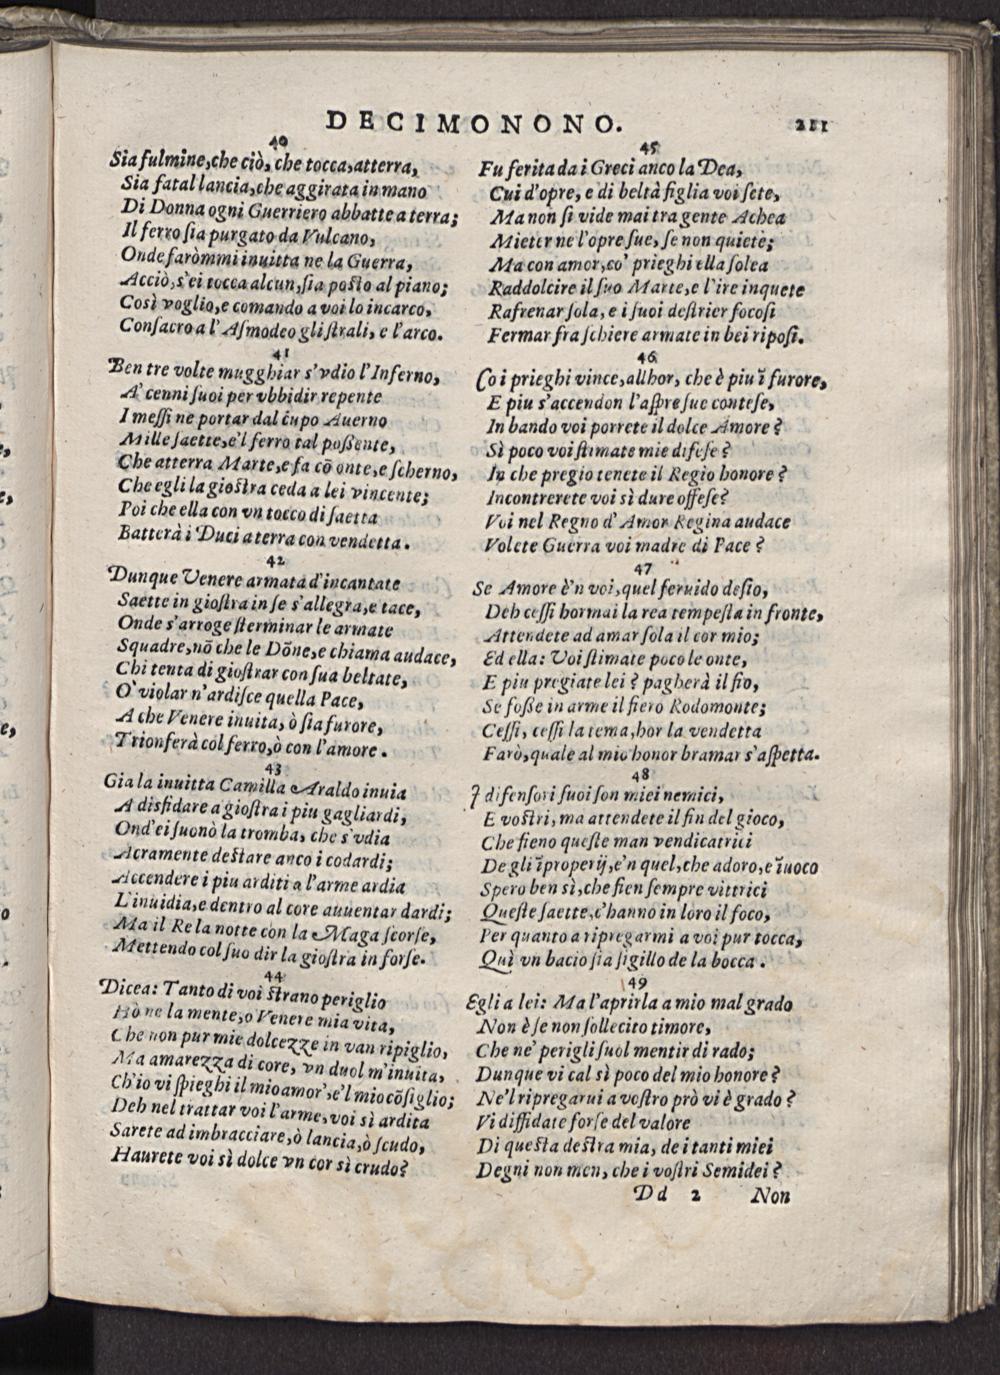 DECIMONONO. 211
40
Sia fulmine, che ciò, che tocca, atterra,
Sia fatal lancia, che aggirata in mano
Di Donna ogni Guerriero abbatte a terra;
Il ferro sia purgato da Vulcano,
Onde faròmmi inuitta ne la Guerra,
Acciò, s'ei tocca alcun, sia posto al piano;
Così voglio, e comando a voi lo incarco,
Consacro a l'Asmodeo gli strali, e l'arco.
41
Ben tre volte mugghiar s'vdio l'Inferno,
A' cenni suoi per vbbidir repente
I messi ne portar dal cupo Auerno
Mille saette, e'l ferro tal possente,
Che atterra Marte, e fa cō onte, e scherno,
Che egli la giostra ceda a lei vincente;
Poi che ella con vn tocco di saetta
Batterà i Duci a terra con vendetta.
42
Dunque Venere armata d'incantate
Saette in giostra in se s'allegra, e tace,
Onde s'arroge sterminar le armate
Squadre, nō che le Dōne, e chiama audace,
Chi tenta di giostrar con sua beltate,
O' violar n'ardisce quella Pace,
A che Venere inuita, ò sia furore,
Trionferà col ferro, ò con l'amore.
43
Gia la inuitta Camilla Araldo inuia
A disfidare a giostra i piu gagliardi,
Ond'ei suonò la tromba, che s'vdia
Acramente destare anco i codardi;
Accendere i piu arditi a l'arme ardia
L'inuidia, e dentro al core auuentar dardi;
Ma il Re la notte con la Maga scorse,
Mettendo col suo dir la giostra in forse.
44
Dicea: Tanto di voi strano periglio
Hò ne la mente, o Venere mia vita,
Che non pur mie dolcezze in van ripiglio,
Ma amarezza di core, vn duol m'inuita,
Ch'io vi spieghi il mio amor', e'l mio cōsiglio;
Deh nel trattar voi l'arme, voi sì ardita
Sarete ad imbracciare, ò lancia, ò scudo,
Haurete voi sì dolce vn cor sì crudo?
45
Fu ferita da i Greci anco la Dea,
Cui d'opre, e di beltà figlia voi sete,
Ma non si vide mai tra gente Achea
Mieter ne l'opre sue, se non quiete;
Ma con amor, co' prieghi ella solea
Raddolcire il suo Marte, e l'ire inquete
Rafrenar sola, e i suoi destrier focosi
Fermar fra schiere armate in bei riposi.
46
Co i prieghi vince, allhor, che è piu ī furore,
E piu s'accendon l'aspre sue contese,
In bando voi porrete il dolce Amore?
Sì poco voi stimate mie difese?
In che pregio tenete il Regio honore?
Incontrerete voi sì dure offese?
Voi nel Regno d'Amor Regina audace
Volete Guerra voi madre di Pace?
47
Se Amore è'n voi, quel feruido desio,
Deh cessi hormai la rea tempesta in fronte,
Attendete ad amar sola il cor mio;
Ed ella: Voi stimate poco le onte,
E piu pregiate lei? pagherà il fio,
Se fosse in arme il fiero Rodomonte;
Cessi, cessi la tema, hor la vendetta
Farò, quale al mio honor bramar s'aspetta.
48
I difensori suoi son miei nemici,
E vostri, ma attendete il fin del gioco,
Che fieno queste man vendicatrici
De gli īproperij, e'n quel, che adoro, e īuoco
Spero ben sì, che fien sempre vittrici
Queste saette, c'hanno in loro il foco,
Per quanto a ripregarmi a voi pur tocca,
Quì vn bacio sia sigillo de la bocca.
49
Egli a lei: Ma l'aprirla a mio mal grado
Non è se non sollecito timore,
Che ne' perigli suol mentir di rado;
Dunque vi cal sì poco del mio honore?
Ne'l ripregarui a vostro prò vi è grado?
Vi diffidate forse del valore
Di questa destra mia, de i tanti miei
Degni non men, che i vostri Semidei?
Dd 2 Non